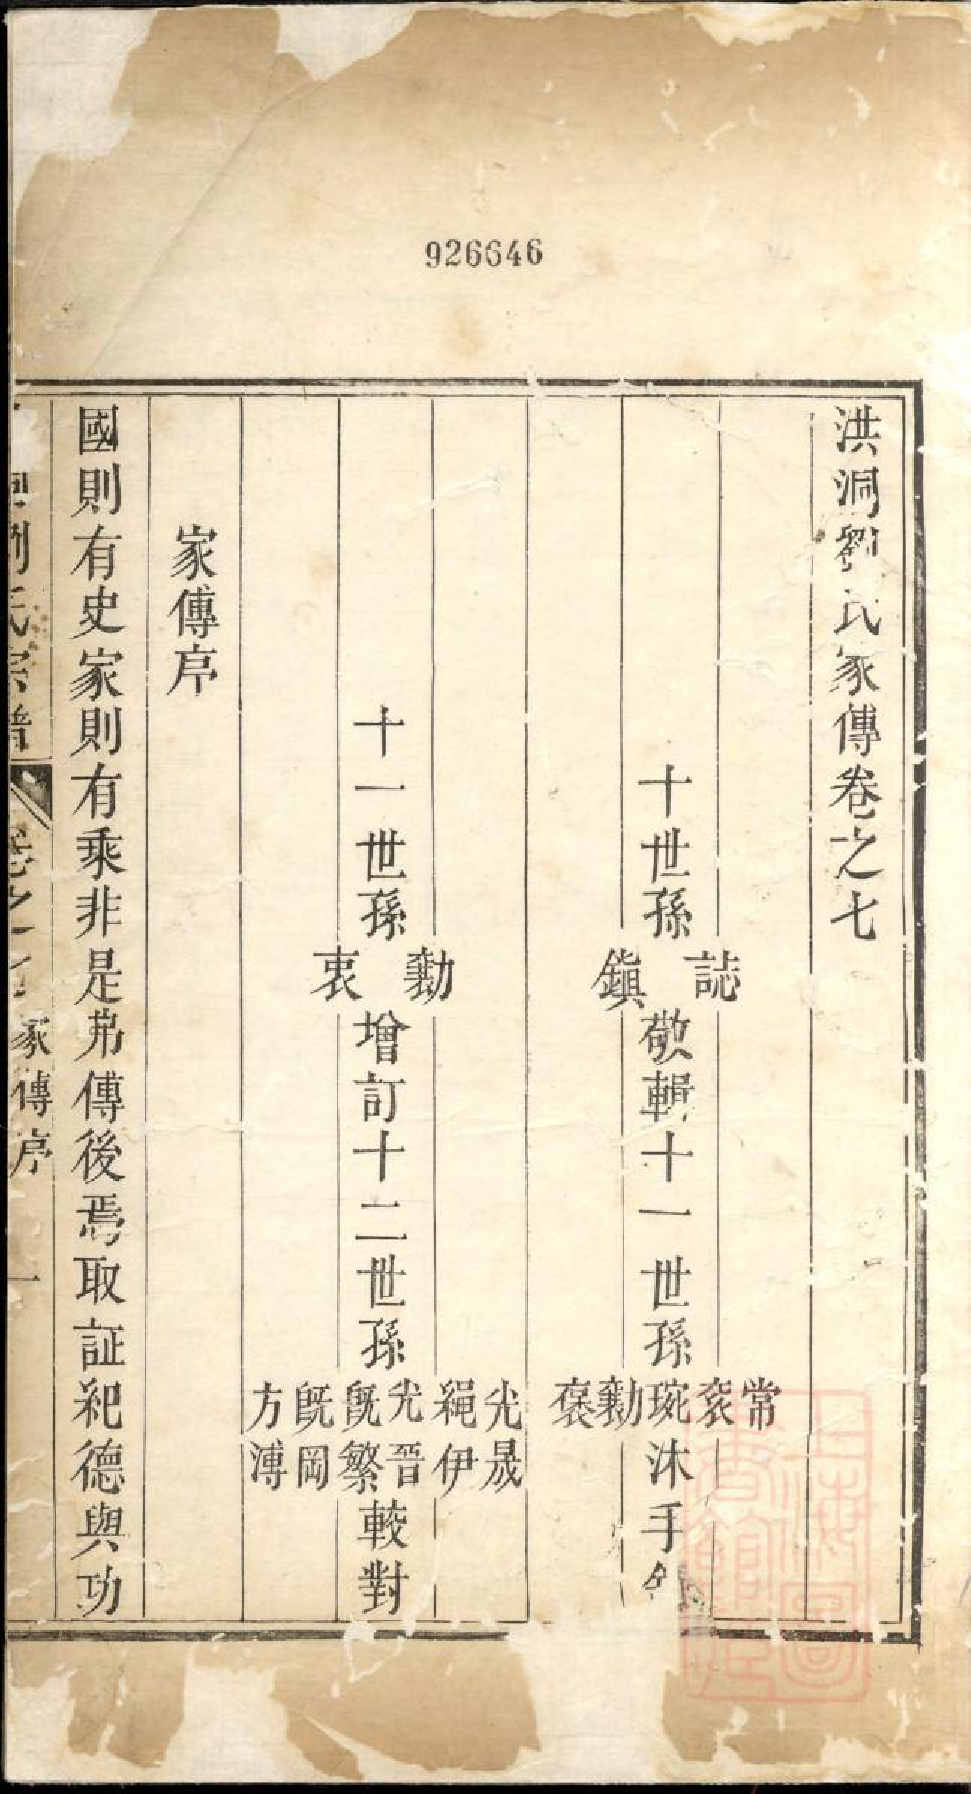 926646
洪洞劉氏家傳卷之七
十世孫 誌 鎮 敬輯十一世孫 常 衮 琬 勷 褒 沐手
十一世孫 勷 衷 增訂十二世孫 光晟 繩伊 光晉 旣繁 旣岡 方溥 較對
家傳序
國則有史家則有乘非是弗傳後焉取証紀德與功
劉氏宗譜 卷之七 家傳序 一
上海圖書館藏